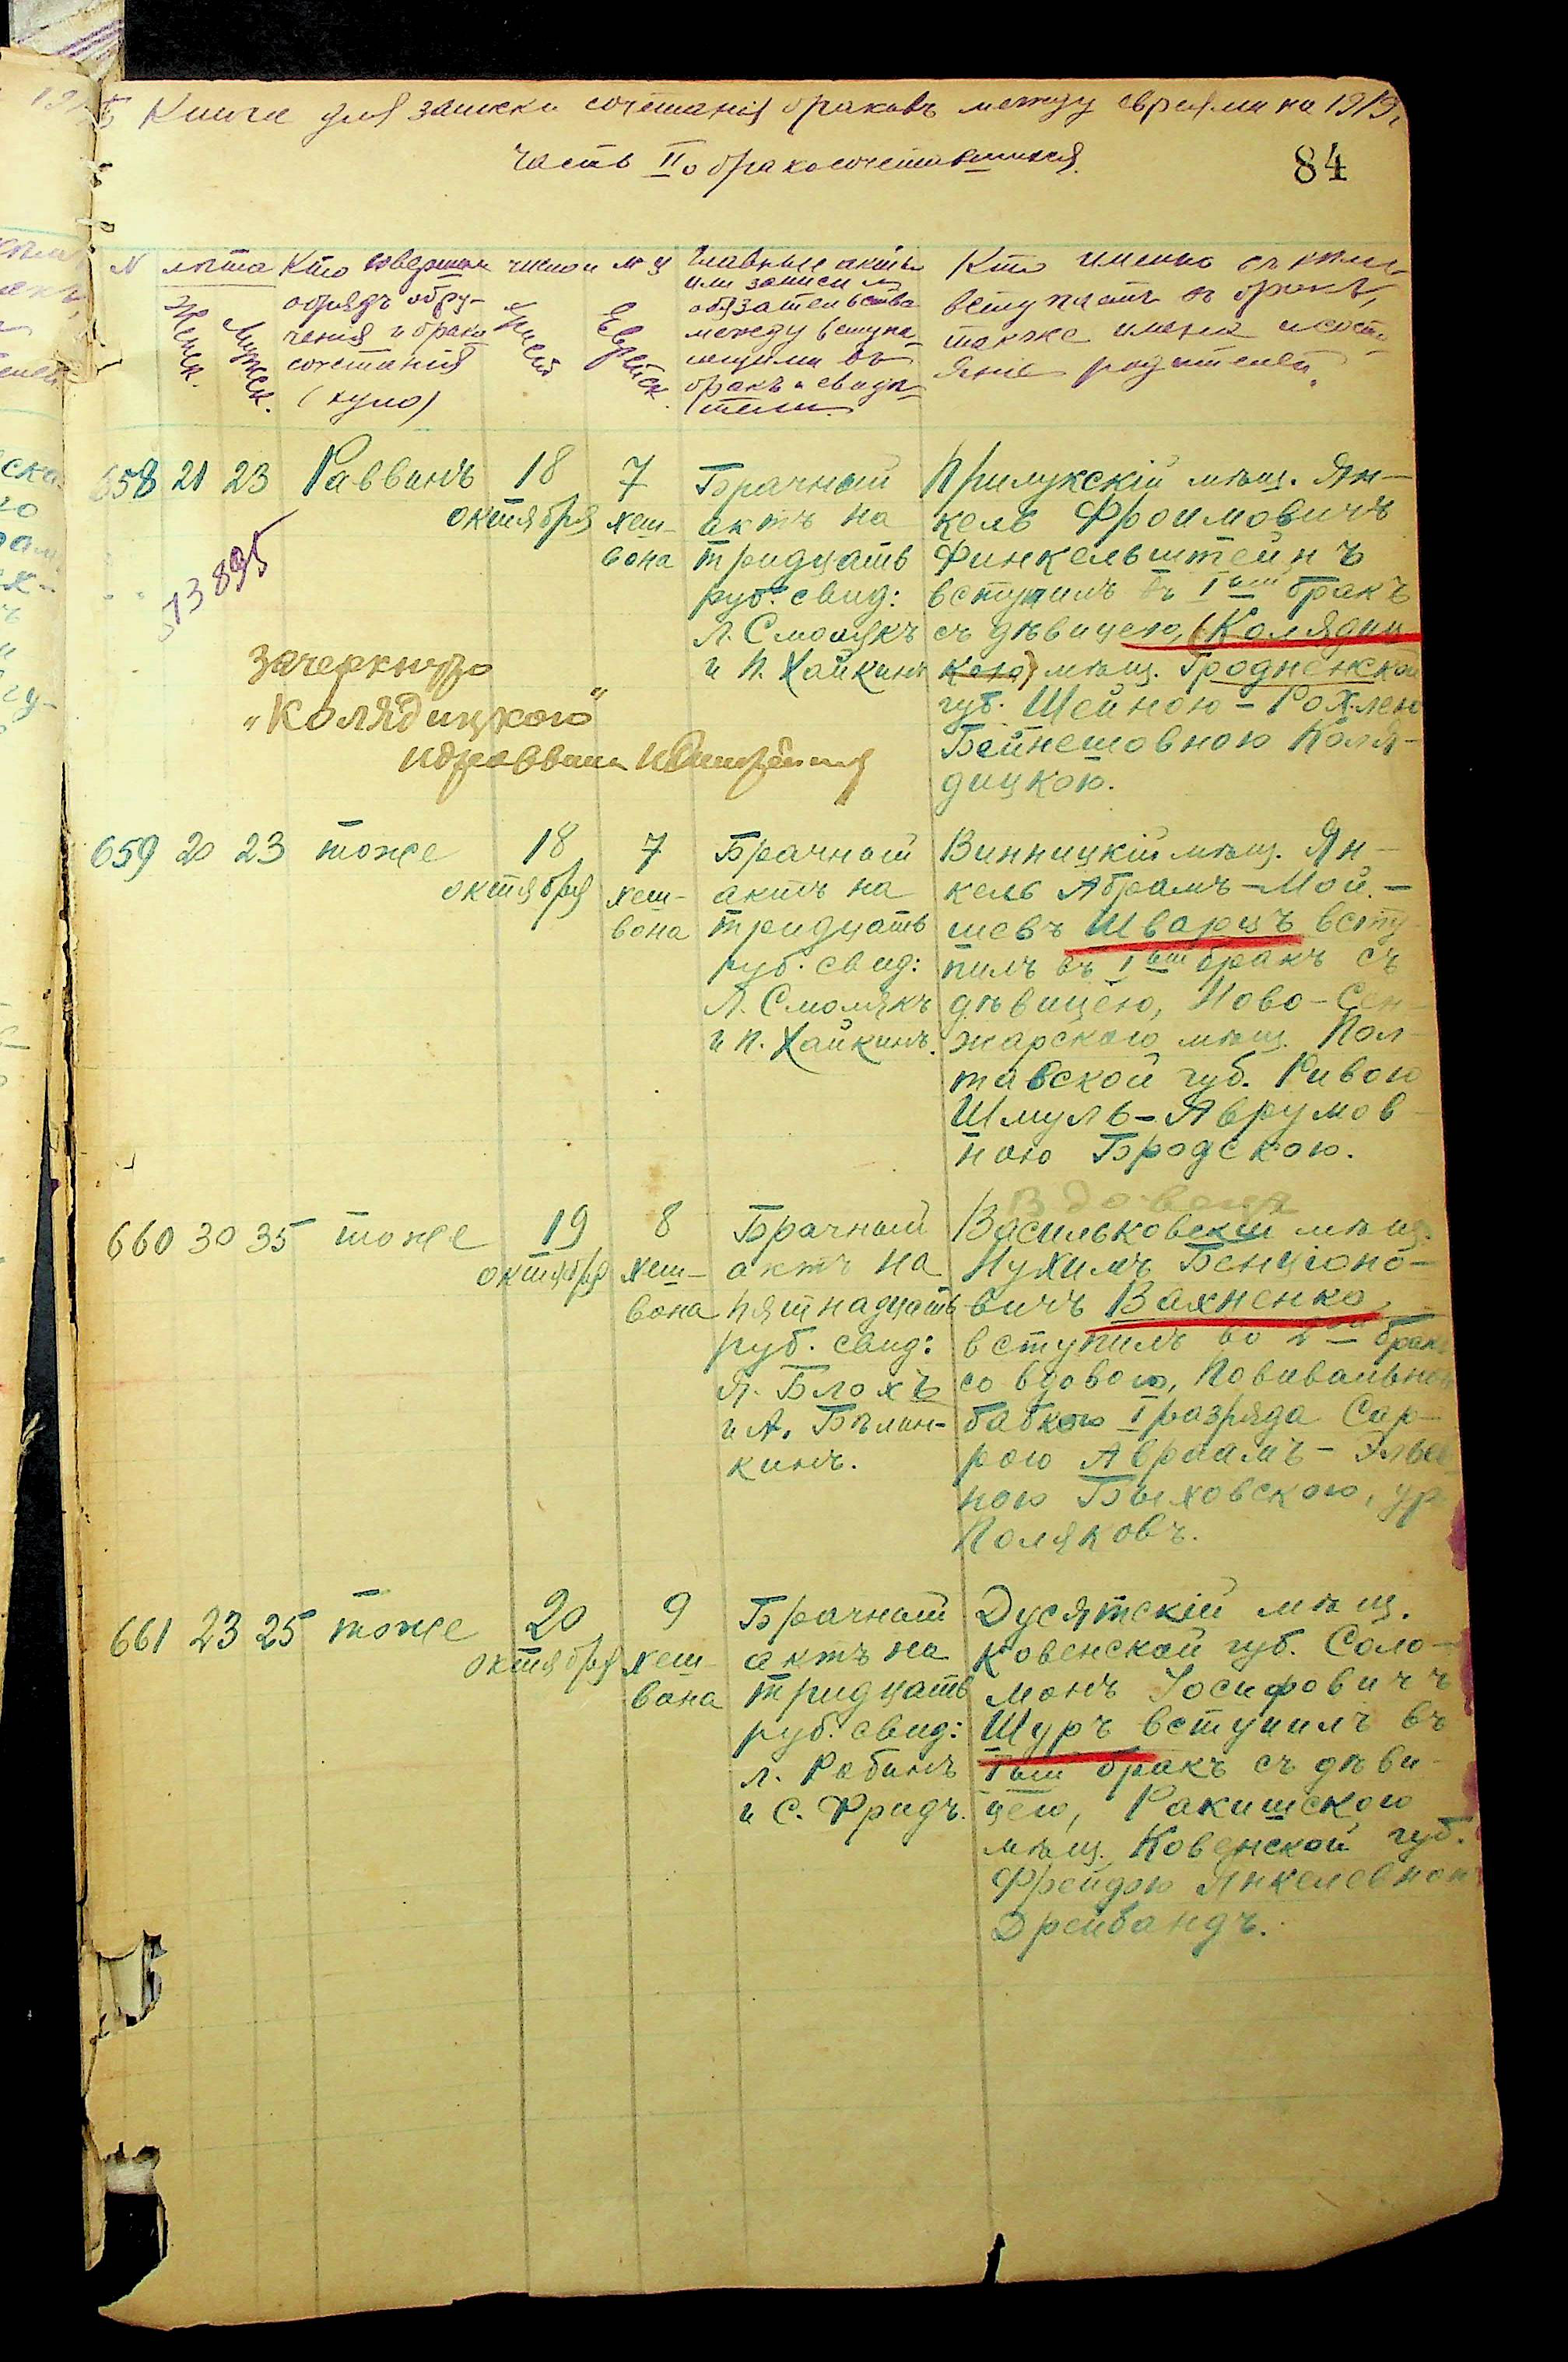 Книга для записки сочетанія браковъ между евреями на 1919 г.
Часть II о бракосочетавшихся.
84
N
лѣта
Женск.
Мужеск.
Кто совершал
обрядъ обру-
ченія и брако
сочетанія
(хупо)
число и м-ц
Христ
Еврейск.
Главные акты
или записи и
обязательства
между вступа-
ющими въ
бракъ и свидѣ-
тели
Кто именно съ кѣмъ
вступаетъ въ бракъ,
также имена и состо-
яніе родителей.
658 21 23 Раввинъ
18
октября
7
хеш-
вона
Брачный
актъ на
тридцать
руб. свид:
Л. Смолякъ
и П. Хайкинъ
Прилукскій мѣщ. Ян-
кель Фроимовичъ
Финкельштейнъ
вступилъ въ 1ый бракъ
съ дѣвицею, (Колядиц
кою) мѣщ. Гродненской
губ. Шейною-Рохлею
Бейнешовною Коля-
дицкою.
573895
Зачеркнуто
"Колядицкою"
659 20 23 тоже
18
октября
7
хеш-
вона
Брачный
актъ на
тридцать
руб. свид:
Л. Смолякъ
и П. Хайкинъ.
Винницкій мѣщ. Ян-
кель Абрамъ-Мой-
шевъ Шварцъ всту
пилъ въ 1ый бракъ съ
дѣвицею, Ново-Сен-
жарскою мѣщ. Пол-
тавской губ. Ривою
Шмуль-Аврумов-
ною Бродскою.
660 30 35 тоже
19
октября
8
хеш-
вона
Брачный
актъ на
пятнадцать
руб. свид:
Я. Блохъ
и А. Бѣлин-
кинъ.
Вдовецъ
Васильковскій мѣщ.
Нухимъ Бенціоно-
вичъ Вахненко
вступилъ во 2ой бракъ
со вдовою, Повивальною
бабкою I разряда Сар-
рою Авраамъ-Элье
ною Быховскою, ур
Поляковъ.
661 23 25 тоже
20
октября
9
хеш-
вона
Брачный
актъ на
тридцать
руб. свид:
Л. Рабинъ
и С. Фридъ.
Дусятскій мѣщ.
Ковенской губ. Соло-
монъ Іосифовичъ
Шуръ вступилъ въ
1ый бракъ съ дѣви-
цею, Ракишскою
мѣщ. Ковенской губ.
Фрейдою Янкелевною
Дрейбандъ.